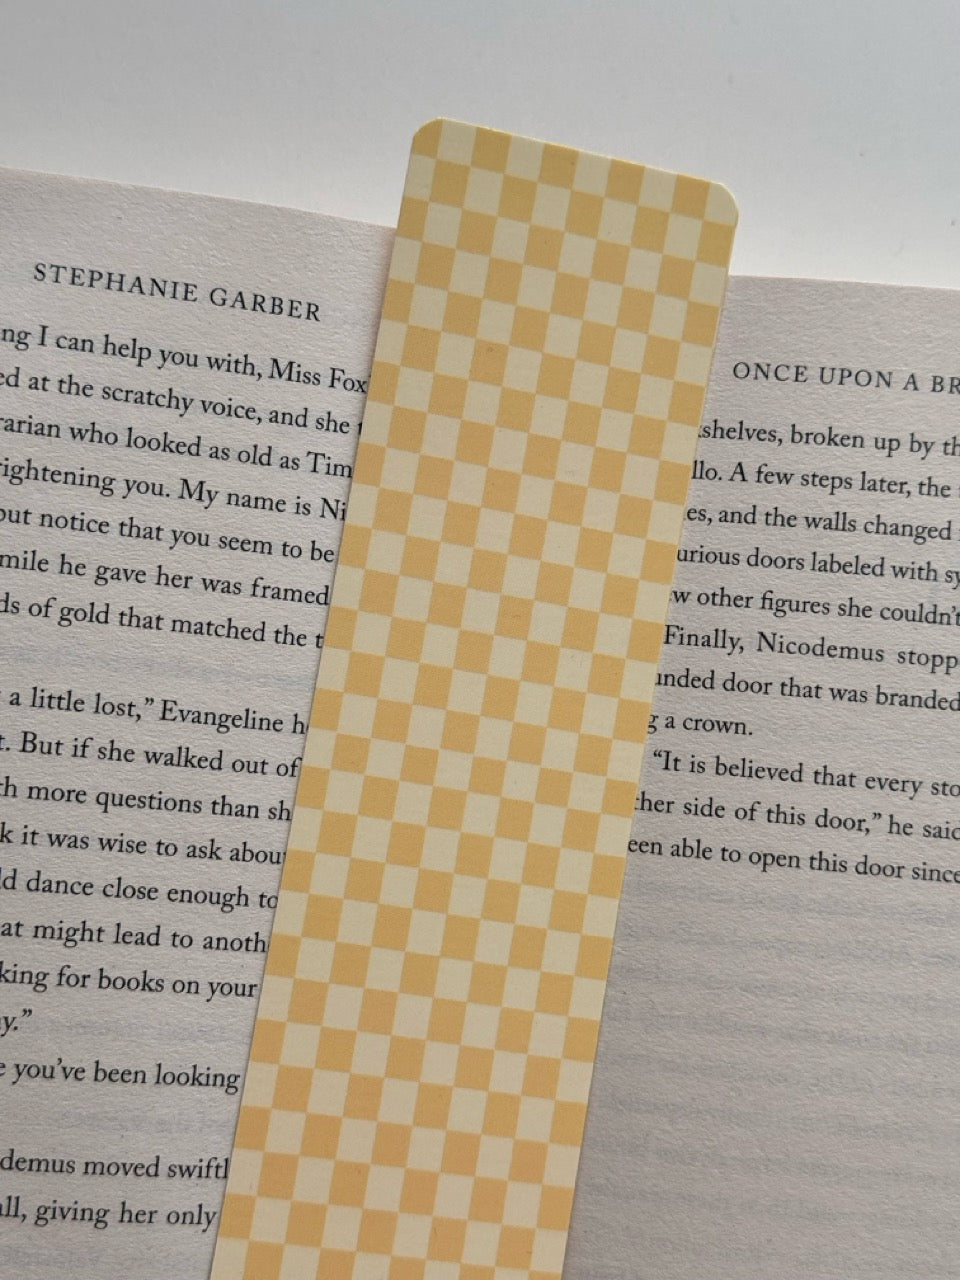 STEPHANIE GARBER
ng I can help you with, Miss Fox
ed at the scratchy voice, and she
rarian who looked as old as Tim
rightening you. My name is Ni
out notice that you seem to be
mile he gave her was framed
ds of gold that matched the t
a little lost,” Evangeline h
t. But if she walked out of
th more questions than sh
k it was wise to ask abou
ld dance close enough to
at might lead to anoth
king for books on your
y.”
e you’ve been looking
demus moved swiftl
all, giving her only
ONCE UPON A BR
shelves, broken up by th
llo. A few steps later, the
es, and the walls changed
urious doors labeled with sy
w other figures she couldn’t
Finally, Nicodemus stopp
unded door that was branded
g a crown.
“It is believed that every sto
ther side of this door,” he said
een able to open this door since